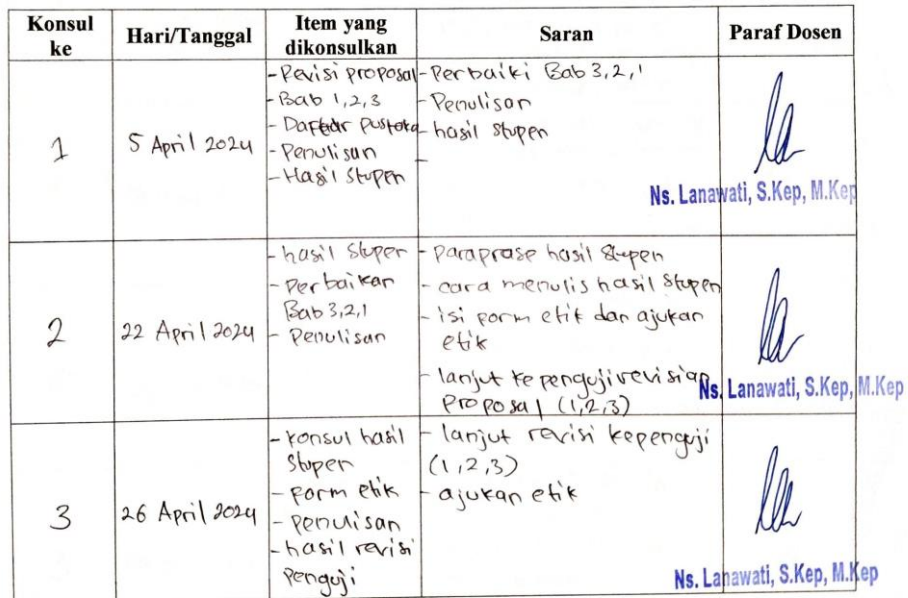 Konsul ke
Hari/Tanggal
Item yang dikonsulkan
Saran
Paraf Dosen
1
5 April 2024
- Revisi proposal
- Bab 1,2,3
- Daftar Pustaka
- Penulisan
- Hasil Stupen
- Perbaiki Bab 3,2,1
- Penulisan
- hasil stupen
-
Ns. Lanawati, S.Kep, M.Kep
2
22 April 2024
- hasil Stupen
- Perbaikan
Bab 3,2,1
- Penulisan
- paraprase hasil Stupen
- cara menulis hasil Stupen
- isi form etik dan ajukan
etik
- lanjut ke penguji revisian
Proposal (1,2,3)
Ns. Lanawati, S.Kep, M.Kep
3
26 April 2024
- konsul hasil
Stupen
- form etik
- penulisan
- hasil revisi
Penguji
- lanjut revisi kepenguji
(1,2,3)
- ajukan etik
Ns. Lanawati, S.Kep, M.Kep